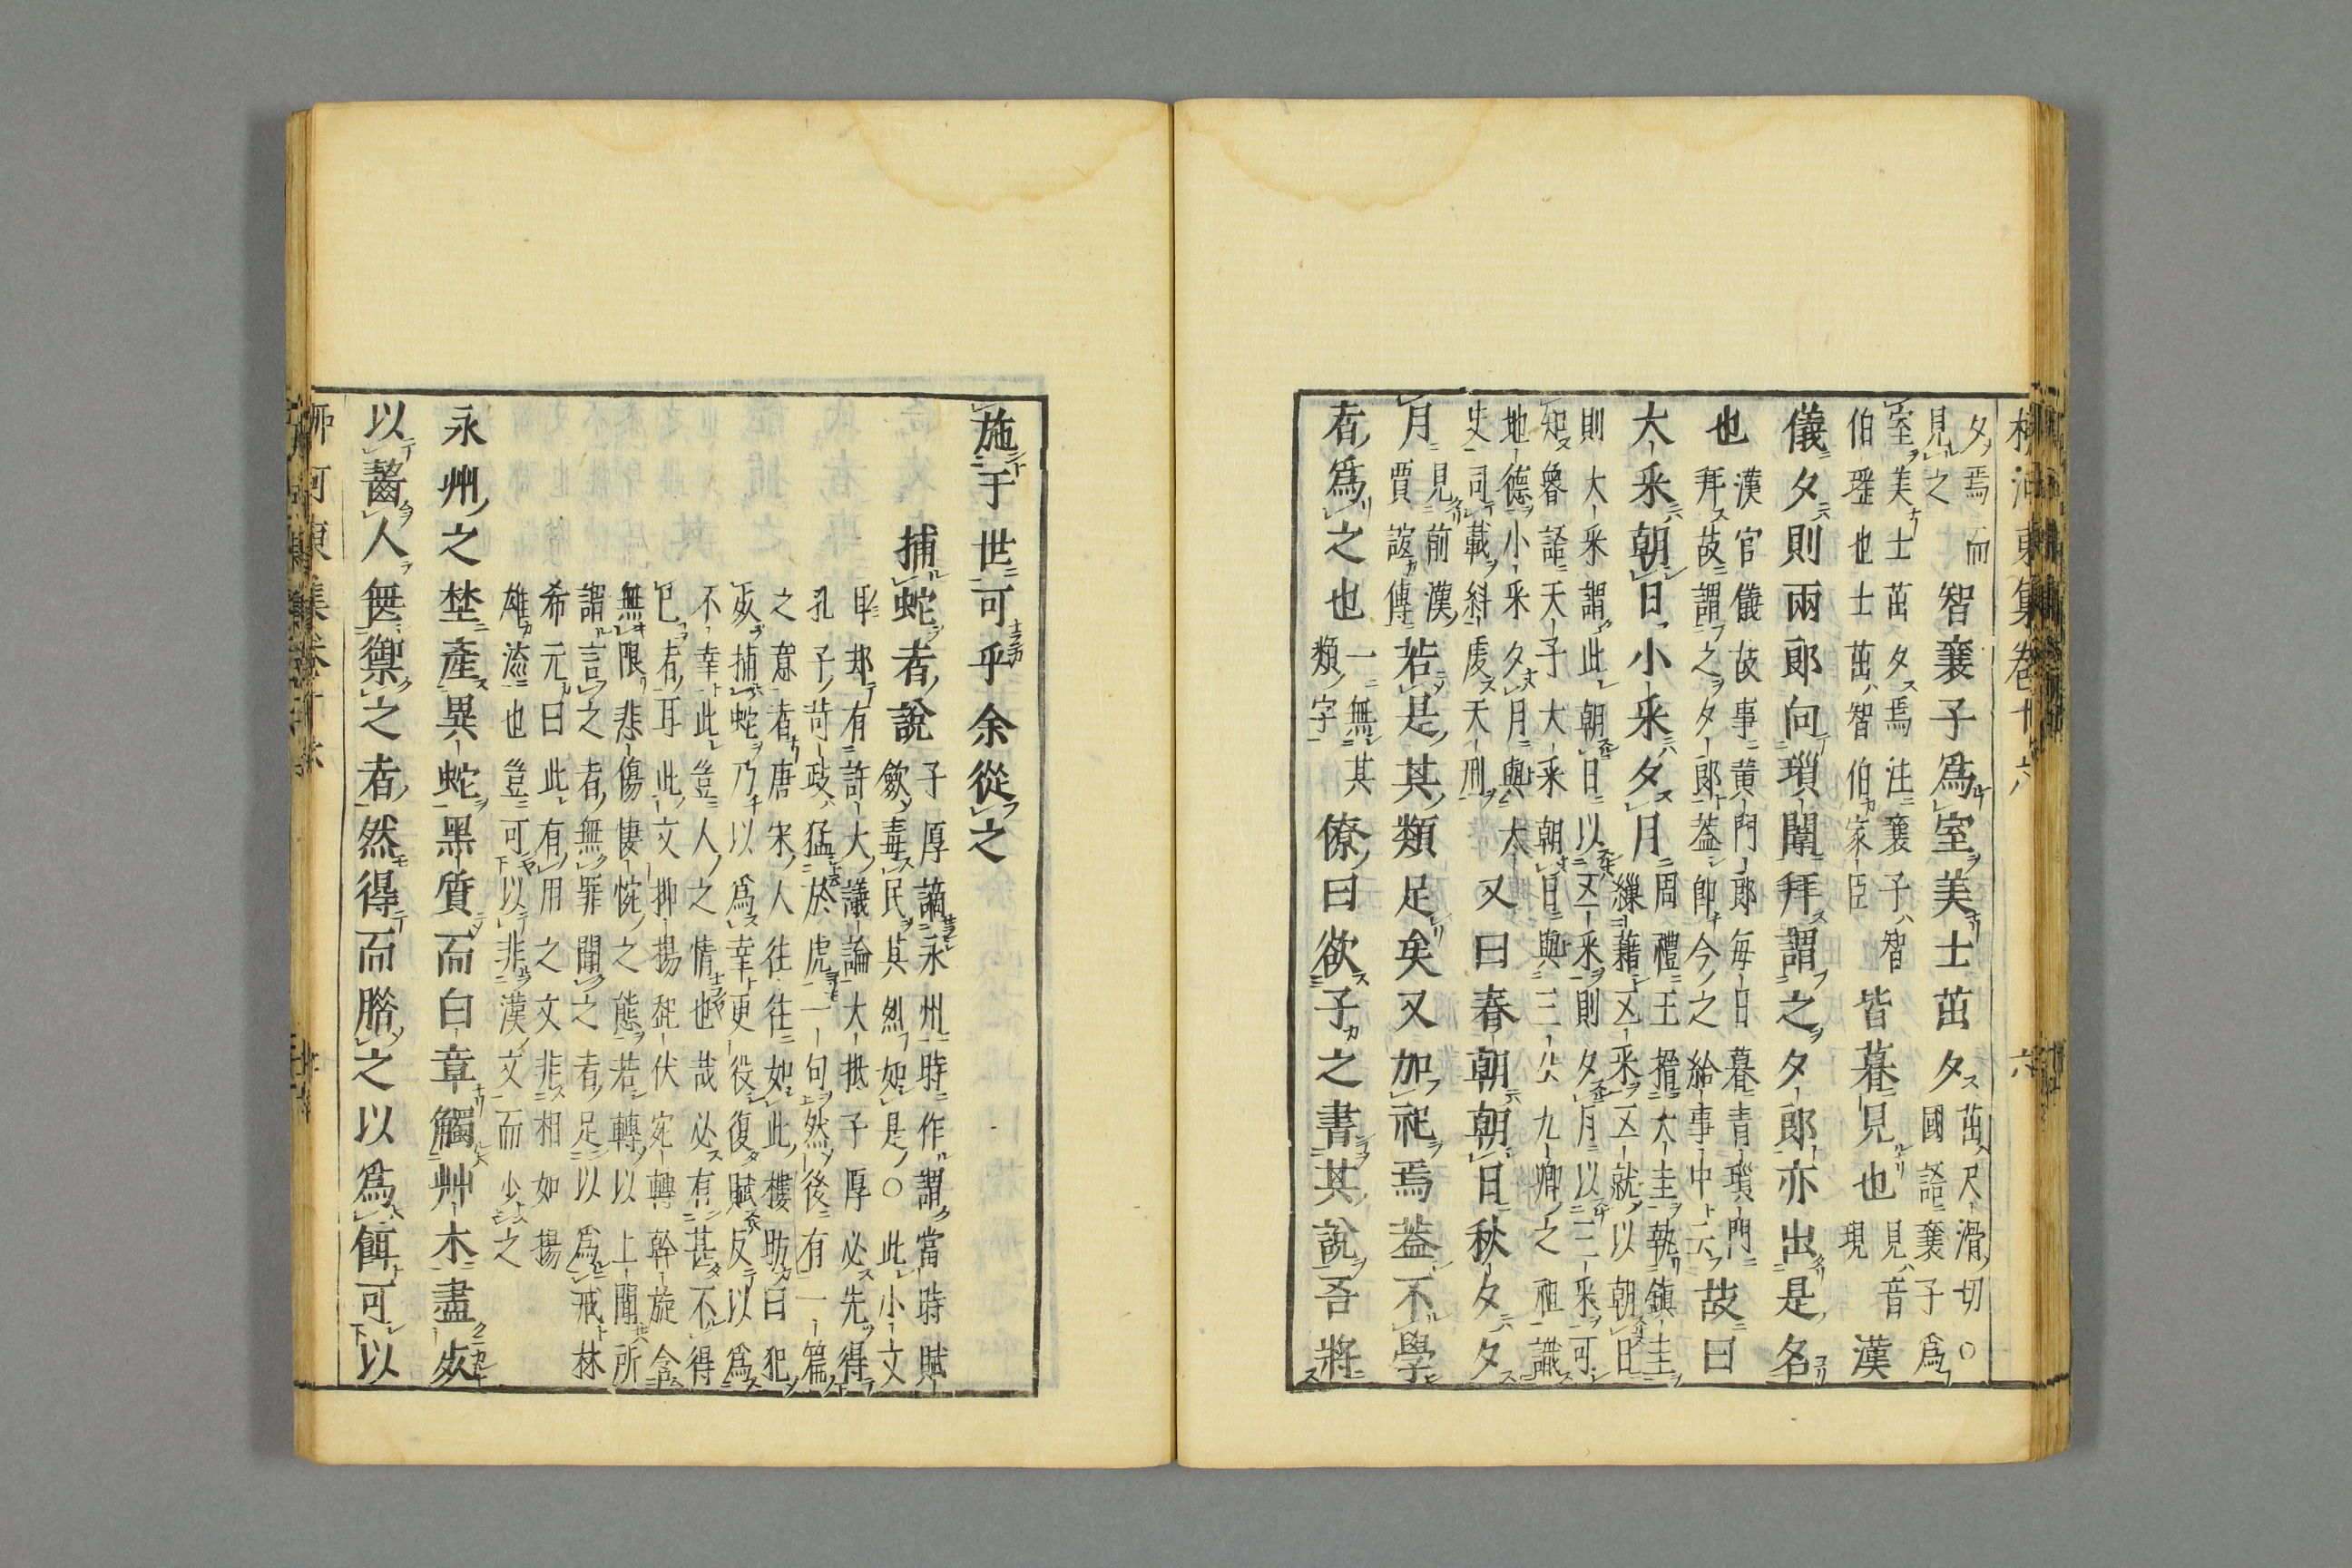 柳河東集卷十六　六
夕焉而
見之
智襄子爲室美士茁夕
茁尺滑切○
國語襄子爲
室美士茁夕焉注襄子智
伯瑶也士茁智伯家臣
皆暮見也
見音
現
漢
儀夕則兩郎向瑣闈拜謂之夕郎亦出是名
也
漢官儀故事黃門郎每日暮青瑣門
拜故謂之夕郎葢卽今之給事中云
故曰
大采朝日小采夕月
周禮王搢大圭執鎮圭
繅藉五采五就以朝日
則大采謂此朝日以五采則夕月以三采可
知魯語天子大采朝日與三公九卿之祖識
地德小采夕月與太
史司載糾虔天刑
又曰春朝朝日秋夕夕
月
見前漢
賈誼傳
若是其類足矣又加祀焉葢不學
者爲之也
一無其
類字
僚曰欲子之書其說吾將
施于世可乎余從之
捕蛇者說
子厚謫永州時作謂當時賦
斂毒民其烈如是○此小文
耳却有許大議論大抵子厚必先得
孔子苛政猛於虎一句然後有一篇
之意者唐宋人往往如此樓昉曰犯
死捕蛇乃以爲幸更役復賦反以爲
不幸此豈人之情也哉必有甚不得
已者耳此文抑揚起伏宛轉斡旋含
無限悲傷悽惋之態若轉以上聞所
謂言之者無罪聞之者足以爲戒林
希元曰此有用之文非相如揚
雄流也豈可以非漢文而少之
永州之埜產異蛇黑質而白章觸艸木盡死
以齧人無禦之者然得而腊之以爲餌可以
柳河東集卷十六